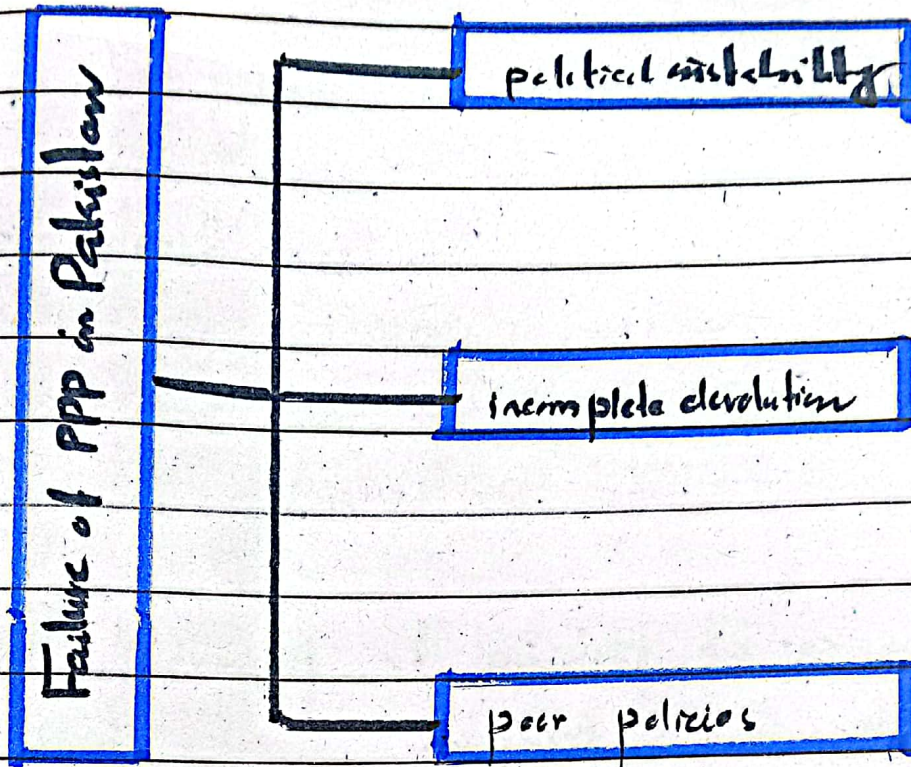 Failure of PPP in Pakistan
political instability
incomplete devolution
poor policies